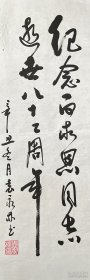 纪念白求恩同志
逝世八十二周年
辛丑冬月袁永书